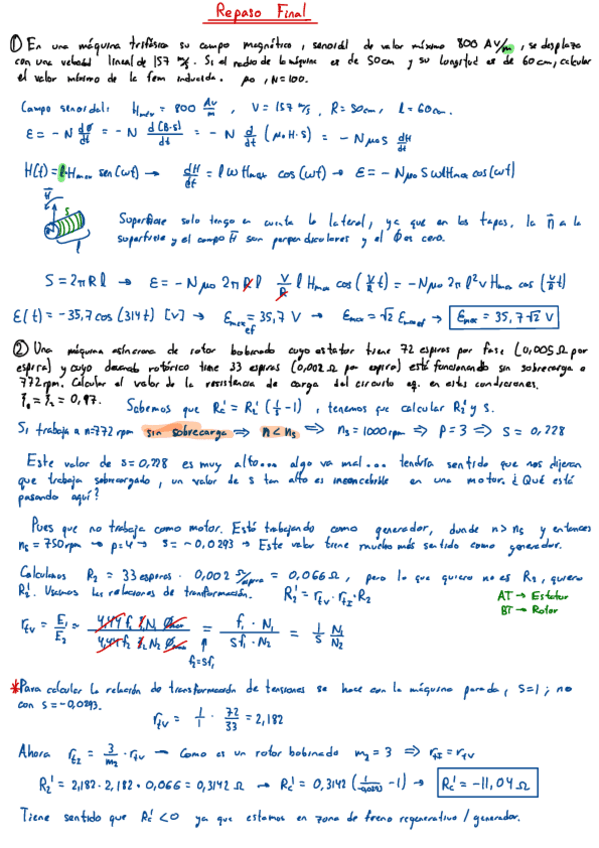 Repaso Final
① En una máquina trifásica su campo magnético, senoidal de valor máximo 800 AV/m, se desplaza
con una velocidad lineal de 157 m/s. Si el radio de la máquina es de 50cm y su longitud es de 60cm, calcular
el valor máximo de la fem inducida. μ₀, N=100.
Campo senoidal: Hmáx = 800 Av/m , V = 157 m/s, R = 50cm, l = 60cm.
ε = -N dΦ/dt = -N d(B·S)/dt = -N d/dt (μ₀·H·S) = -Nμ₀S dH/dt
H(t) = l·Hmax sen(ωt) → dH/dt = lωHmax cos(ωt) → ε = -Nμ₀SωlHmax cos(ωt)
H S
N l
Superficie solo tengo en cuenta la lateral, ya que en las tapas, la n a la
superficie y el campo H son perpendiculares y el Φ es cero.
S = 2πRl → ε = -Nμ₀ 2πRl V/R l Hmax cos(V/R t) = -Nμ₀ 2π l² V Hmax cos(V/R t)
ε(t) = -35,7 cos(314t) [V] → Emax ef = 35,7 V → Emax = √2 Emax ef → Emax = 35,7√2 V
② Una máquina asíncrona de rotor bobinado cuyo estator tiene 72 espiras por fase (0,005Ω por
espira) y cuyo devanado rotórico tiene 33 espiras (0,002Ω por espira) está funcionando sin sobrecarga a
772rpm. Calcular el valor de la resistencia de carga del circuito eq. en estas condiciones.
ξ₁ = ξ₂ = 0,97. Sabemos que Rc' = R2' (1/s -1), tenemos que calcular R2' y s.
Si trabaja a n=772rpm sin sobrecarga ⇒ n<ns ⇒ ns=1000rpm ⇒ p=3 ⇒ s=0,228
Este valor de s=0,228 es muy alto... algo va mal... tendría sentido que nos dijeran
que trabaja sobrecargado, un valor de s tan alto es inconcebible en una motor. ¿Qué está
pasando aquí?
Pues que no trabaja como motor. Está trabajando como generador, donde n>ns y entonces
ns = 750rpm → p=4 → s = -0,0293 → Este valor tiene mucho más sentido como generador.
Calculamos R2 = 33 espiras · 0,002 Ω/espira = 0,066Ω, pero lo que quiero no es R2, quiero
R2'. Usamos las relaciones de transformación. R2' = rtv · rtI · R2
AT → Estator
BT → Rotor
rtv = E1/E2 = 4,44 f1 ξ1 N1 Φmax / 4,44 f2 ξ2 N2 Φmax = f1·N1 / sf1·N2 = 1/s N1/N2
f2=sf1
*Para calcular la relación de transformación de tensiones se hace con la máquina parada, s=1; no
con s=-0,0293.
rtv = 1/1 · 72/33 = 2,182
Ahora rtI = 3/m2 · rtv → Como es un rotor bobinado m2 = 3 ⇒ rtI = rtv
R2' = 2,182 · 2,182 · 0,066 = 0,3142 Ω → Rc' = 0,3142 (1/-0,0293 -1) → Rc' = -11,04 Ω
Tiene sentido que Rc' <0 ya que estamos en zona de freno regenerativo / generador.